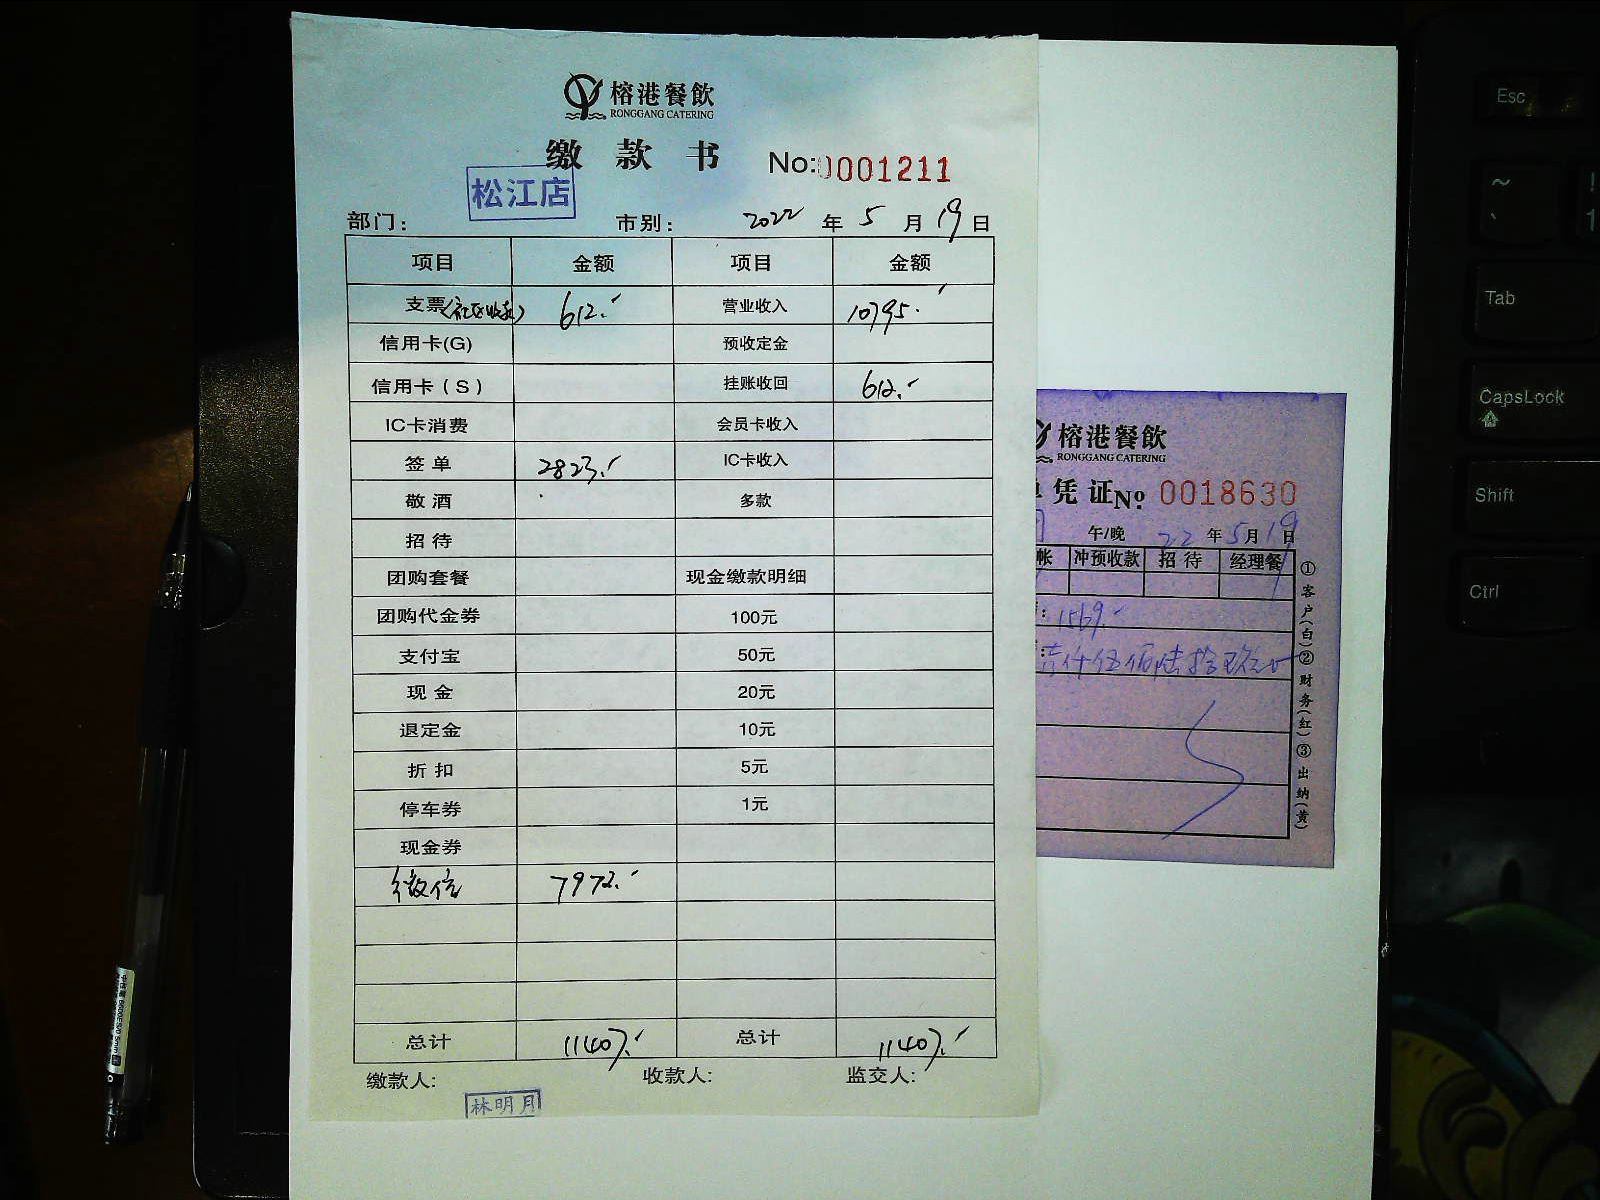 榕港餐飲
RONGGANG CATERING
缴款书 No:0001211
松江店
部门: 市别: 2022 年 5 月 19 日
项目 金额 项目 金额
支票 612.- 营业收入 10795.-
信用卡(G) 预收定金
信用卡(S) 挂账收回 612.-
IC卡消费 会员卡收入
签单 2823.- IC卡收入
敬酒 多款
招待
团购套餐 现金缴款明细
团购代金券 100元
支付宝 50元
现金 20元
退定金 10元
折扣 5元
停车券 1元
现金券
微信 7972.-
总计 11407.- 总计 11407.-
缴款人: 收款人: 监交人:
林明月
榕港餐飲
RONGGANG CATERING
凭证 No: 0018630
午/晚 22 年 5 月 19 日
帐 冲预收款 招待 经理餐
: 1569.-
: 壹仟伍佰陆拾玖元
①客户(白)②财务(红)③出纳(黄)
Esc
~
`
!
1
Tab
CapsLock
Shift
Ctrl